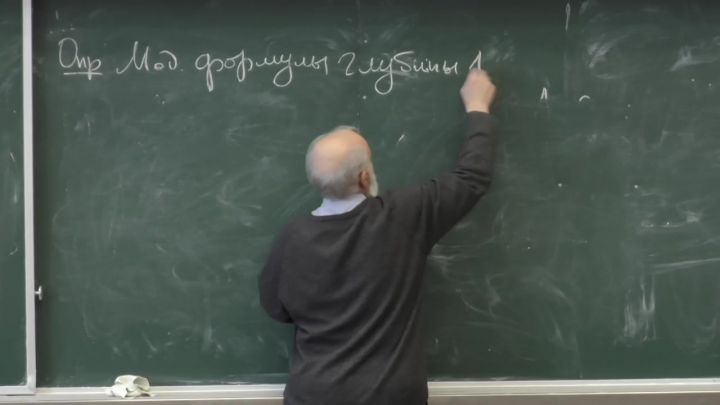 Опр Мод. формулы глубины 1